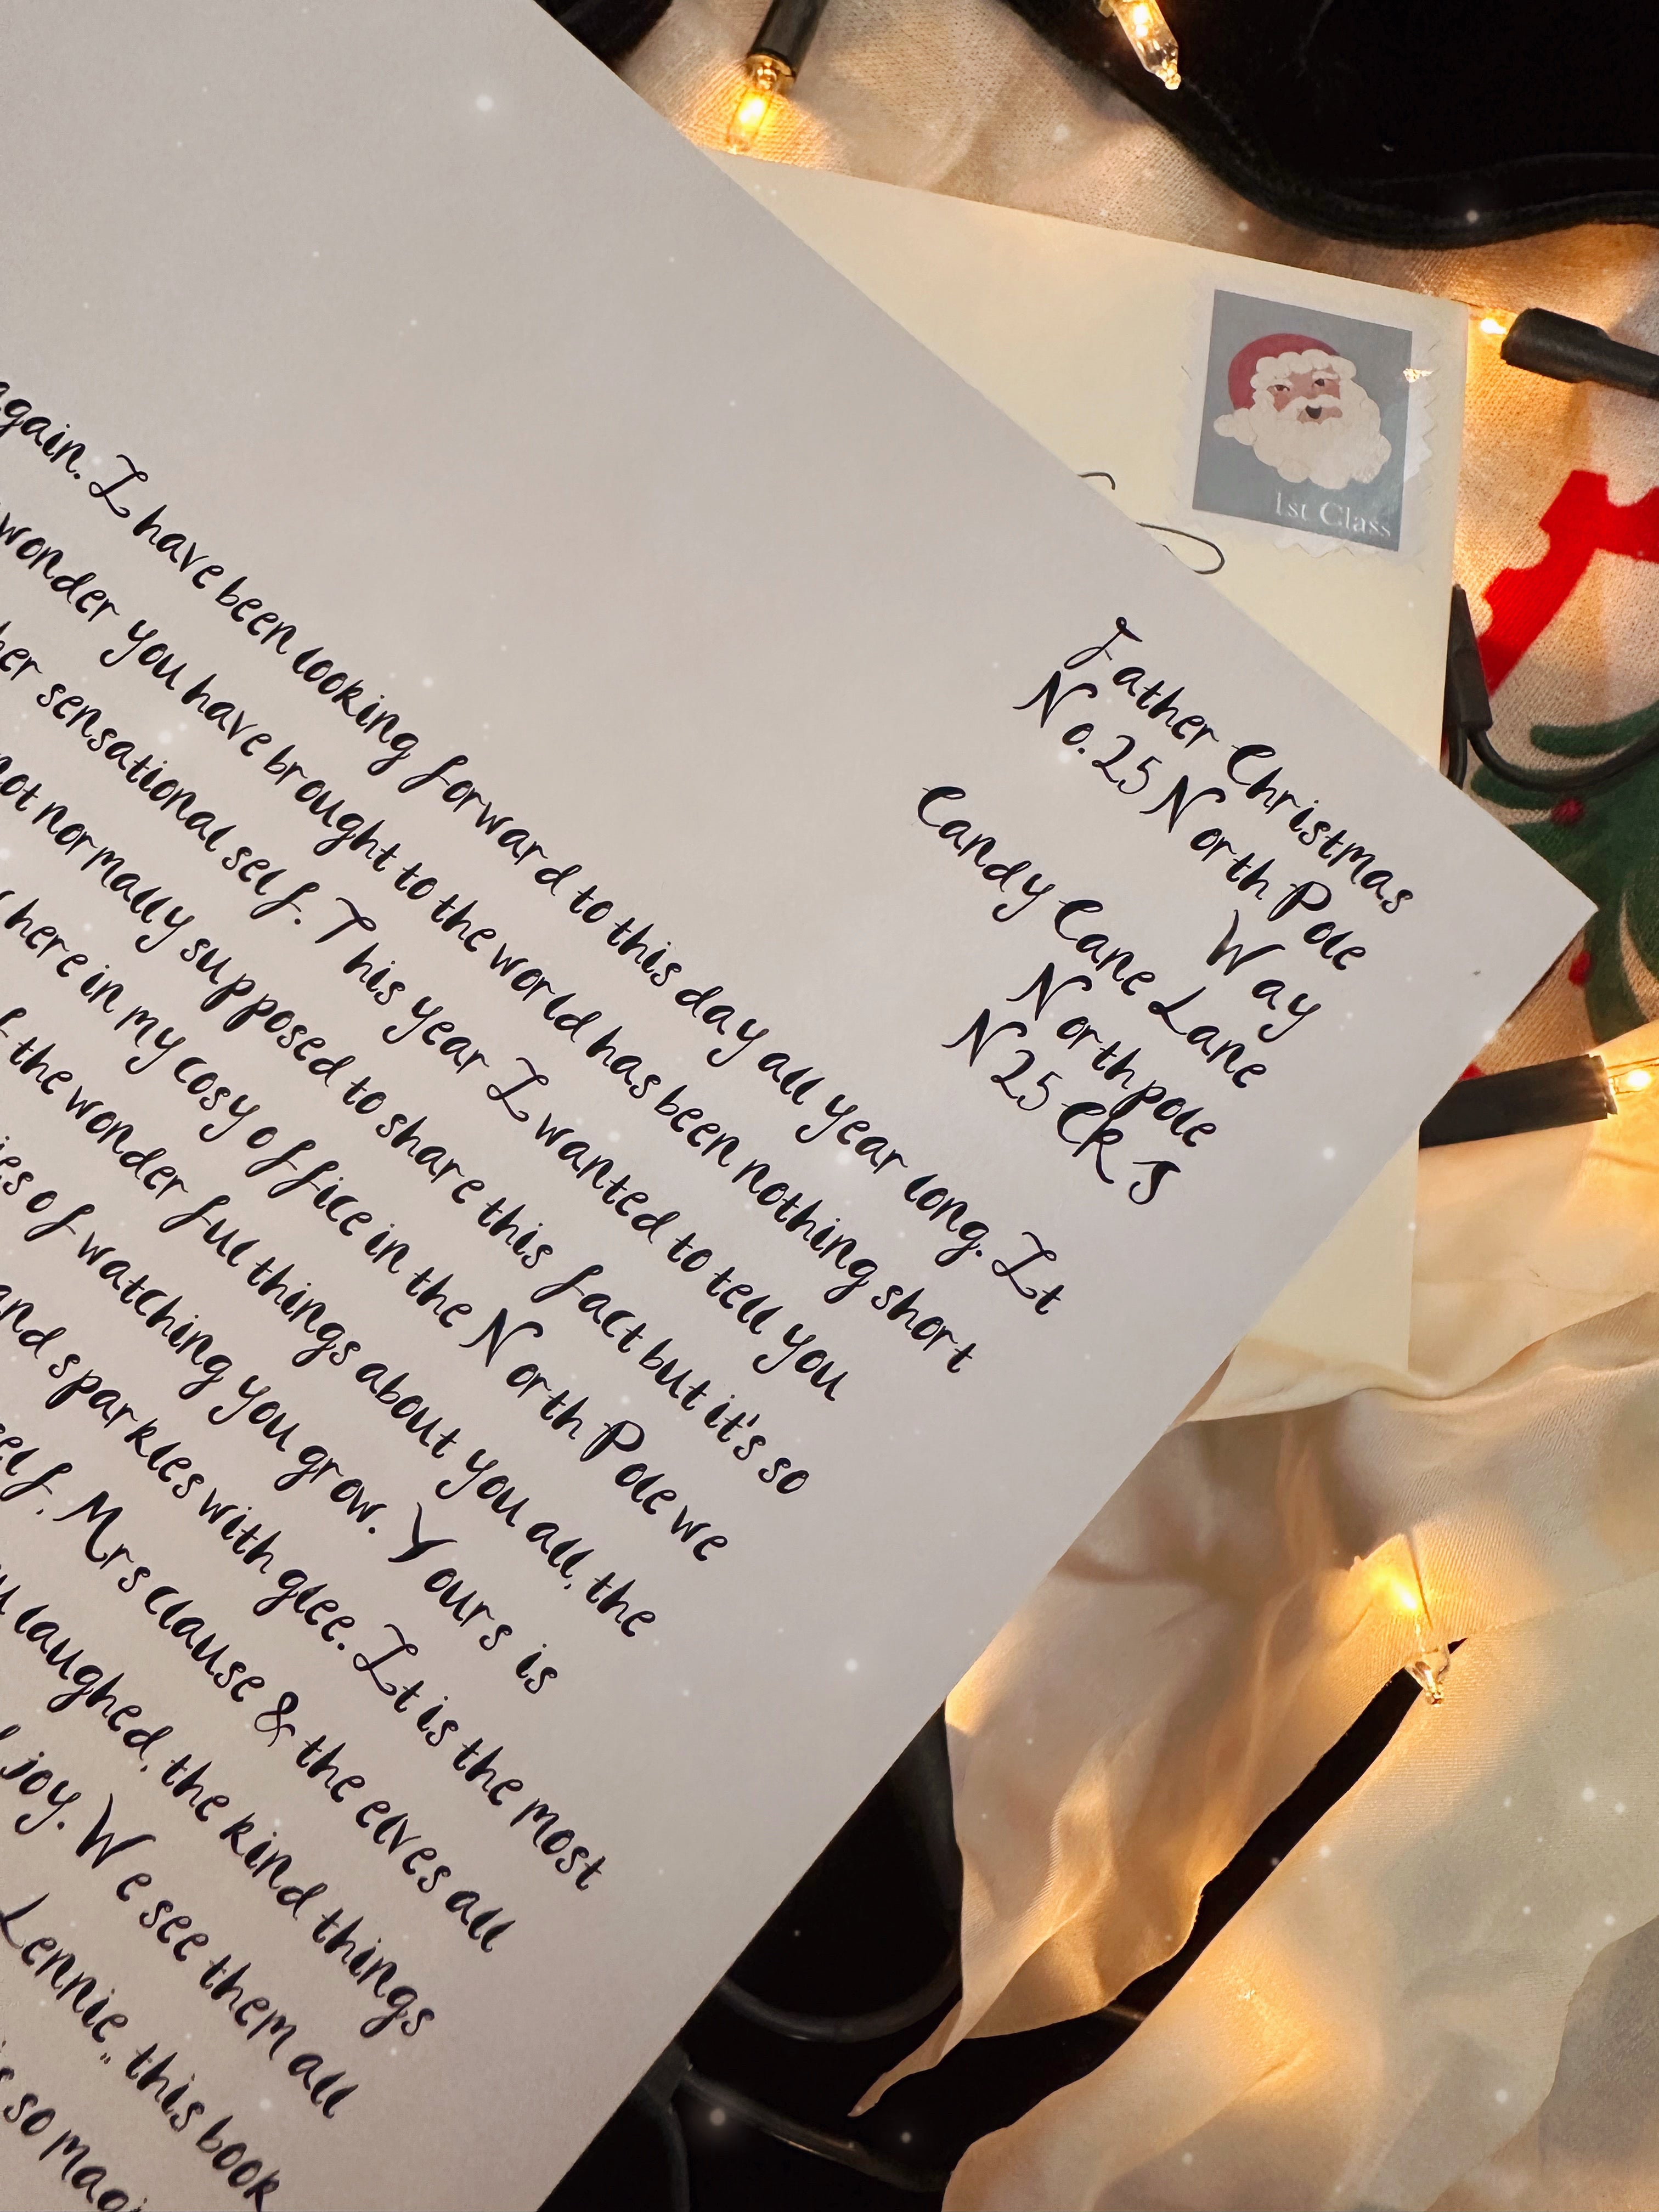 Father Christmas
No.25 North Pole
Way
Candy Cane Lane
Northpole
N25 CRJ
again. I have been looking forward to this day all year long. It
wonder you have brought to the world has been nothing short
sensational self. This year I wanted to tell you
not normally supposed to share this fact but it's so
here in my cosy office in the North Pole we
the wonderful things about you all, the
of watching you grow. Yours is
and sparkles with glee. It is the most
self, Mrs clause & the elves all
laughed, the kind things
joy. We see them all
Lennie", this book
so
1st Class